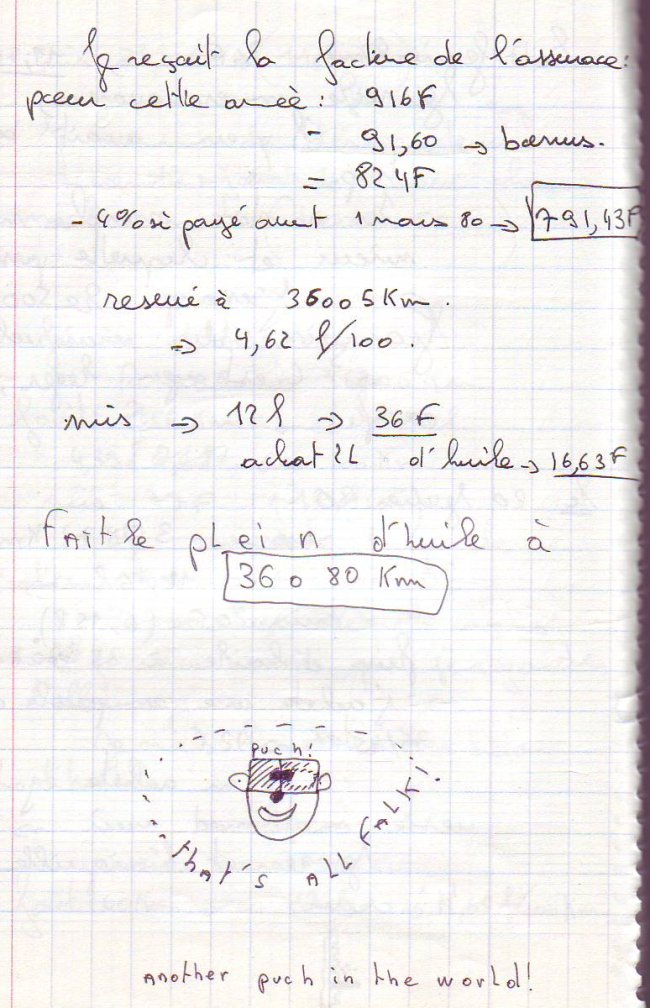 Je reçait la facture de l'assurace:
pour cette anéé : 916F
- 91,60 → bonus.
= 824F
- 4% si payé avent 1 mars 80 → 791,43F
reserve à 36005 Km.
⇒ 4,62 l/100.
mis → 12l → 36 F
achat 2L d'huile → 16,63F
FAit le pLein d'huile à
36 0 80 Km
puch!
that's ALL FALKI!
Another puch in the world!